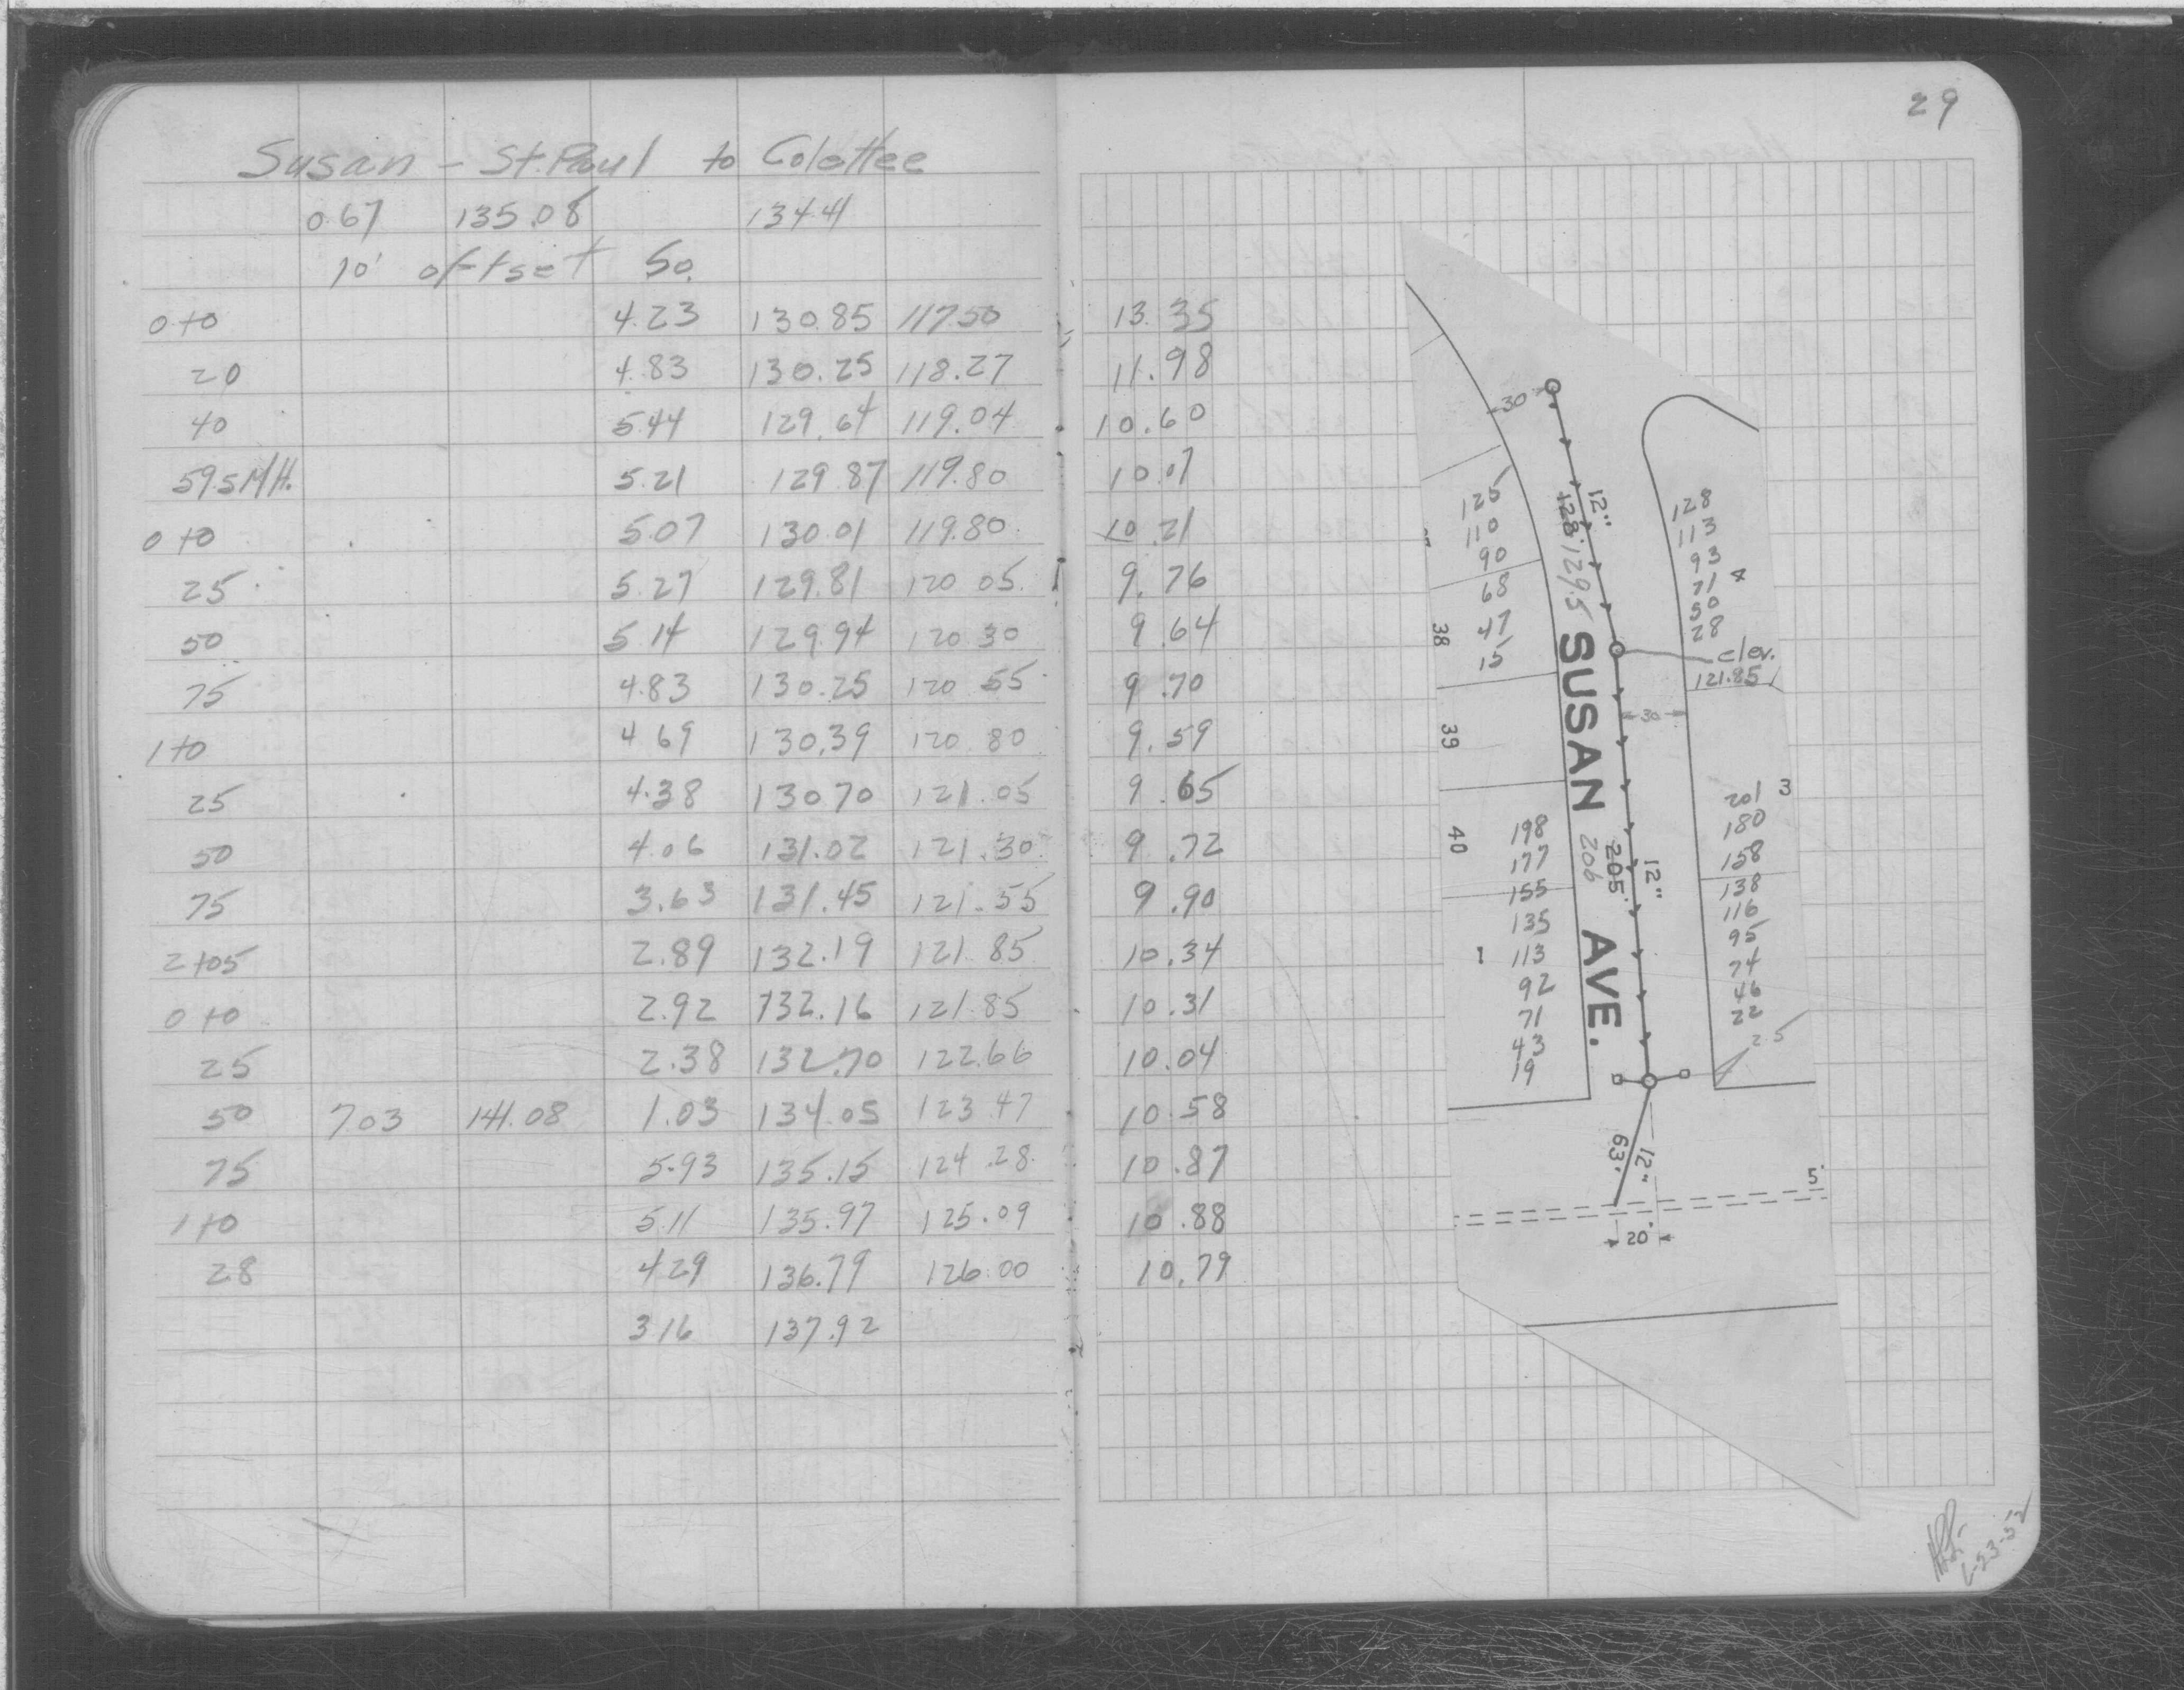 29
Susan - St. Paul to Colettee
0.67 135.08 134.41
10' offset So.
0+0 4.23 130.85 117.50 13.35
20 4.83 130.25 118.27 11.98
40 5.44 129.64 119.04 10.60
59.5 M.H. 5.21 129.87 119.80 10.07
0+0 5.07 130.01 119.80 10.21
25 5.27 129.81 120.05 9.76
50 5.14 129.94 120.30 9.64
75 4.83 130.25 120.55 9.70
1+0 4.69 130.39 120.80 9.59
25 4.38 130.70 121.05 9.65
50 4.06 131.02 121.30 9.72
75 3.63 131.45 121.55 9.90
2+05 2.89 132.19 121.85 10.34
0+0 2.92 132.16 121.85 10.31
25 2.38 132.70 122.66 10.04
50 7.03 141.08 1.03 134.05 123.47 10.58
75 5.93 135.15 124.28 10.87
1+0 5.11 135.97 125.09 10.88
28 4.29 136.79 126.00 10.79
3.16 137.92
30
12"
128' 129.5
125
110
90
68
47
15
128
113
93
71
50
28
4
38
elev.
121.85
30
39
40
SUSAN AVE.
205' 206
12"
198
177
155
135
113
92
71
43
19
1
201
180
158
138
116
95
74
46
22
3
25
63'
12"
5'
20'
6-23-52